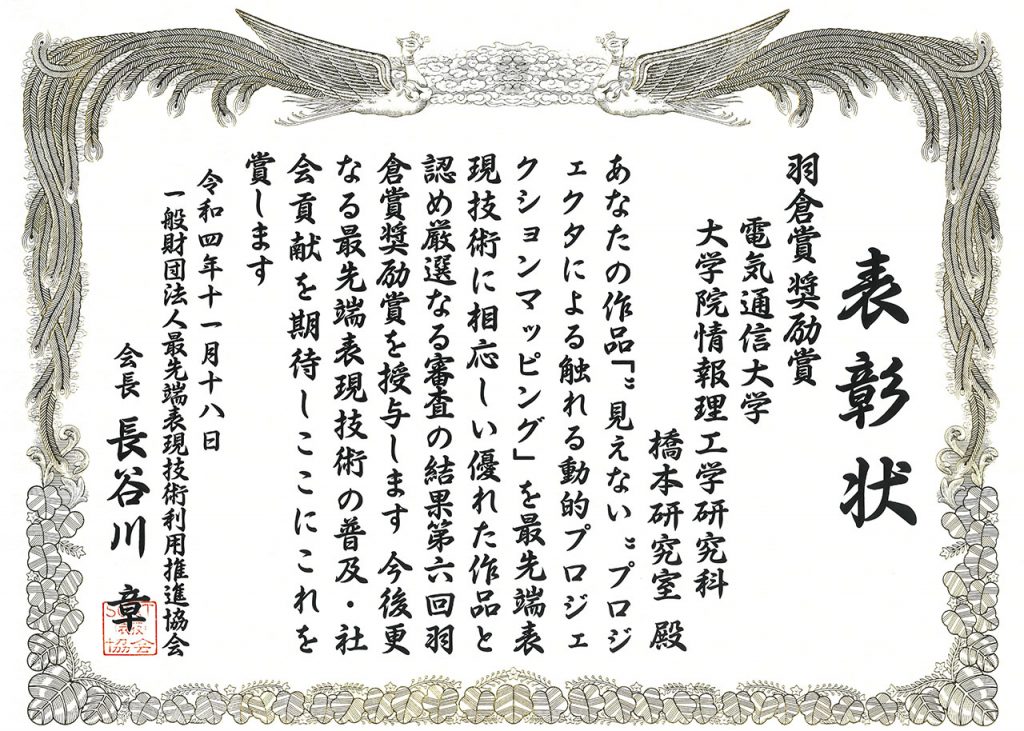 表彰状
羽倉賞 奨励賞
電気通信大学
大学院情報理工学研究科
橋本研究室 殿
あなたの作品「"見えない"プロジ
ェクタによる触れる動的プロジェ
クションマッピング」を最先端表
現技術に相応しい優れた作品と
認め厳選なる審査の結果第六回羽
倉賞奨励賞を授与します 今後更
なる最先端表現技術の普及・社
会貢献を期待しここにこれを
賞します
令和四年十一月十八日
一般財団法人最先端表現技術利用推進協会
会長 長谷川 章
協会